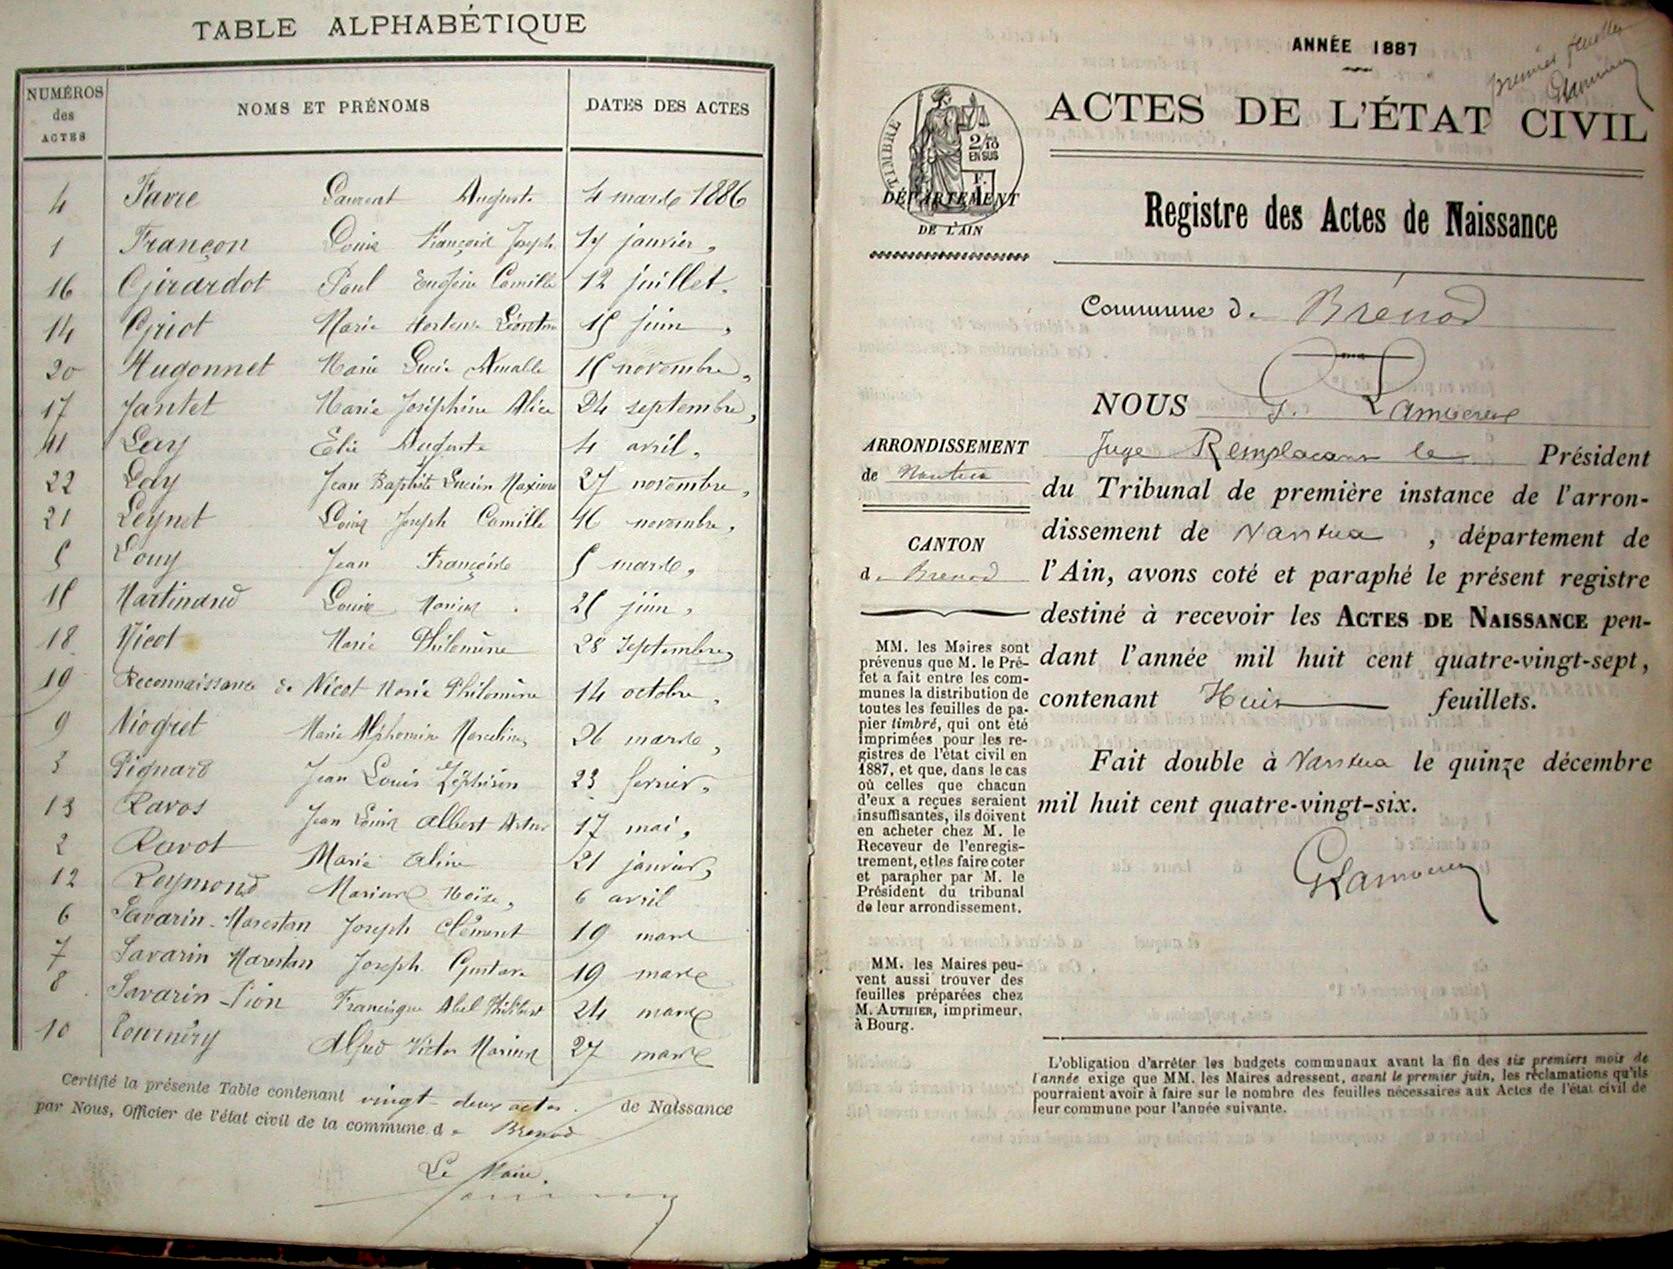 TABLE ALPHABÉTIQUE
NUMÉROS des ACTES NOMS ET PRÉNOMS DATES DES ACTES
4 Favre Laurent Auguste 4 mars 1886
1 Françon Louis François Joseph 17 janvier
16 Girardot Paul Eugène Camille 12 juillet
14 Griot Marie Hortense 15 juin
20 Hugonnet Marie Lucie 15 novembre
17 Jantet Marie Joséphine Alice 24 septembre
11 Elie Auguste 4 avril
22 Jean Baptiste Lucien 27 novembre
21 Leynet Louis Joseph Camille 16 novembre
5 Jean François 5 mars
15 Martinand Louis Marius 25 juin
18 Nicot Marie Philomène 28 septembre
19 Reconnaissance de Nicot Marie Philomène 14 octobre
9 Niogret Marie Alphonsine 26 mars
3 Pignard Jean Louis Zéphirin 23 février
13 Ravos Jean Louis Albert 17 mai
2 Ravot Marie Aline 21 janvier
12 Reymond Marius Moïse 6 avril
6 Savarin-Marestan Joseph Clément 19 mars
7 Savarin Marestan Joseph Gustave 19 mars
8 Savarin-Pion Francisque Abel Philibert 24 mars
10 Tournéry Alfred Victor Marius 27 mars
Certifié la présente Table contenant vingt deux actes. de Naissance
par Nous, Officier de l'état civil de la commune de Brenod
Le Maire.
ANNÉE 1887
premier feuillet
TIMBRE
2/10
EN SUS
ACTES DE L'ÉTAT CIVIL
DÉPARTEMENT
DE L'AIN
Registre des Actes de Naissance
Commune de Brénod
NOUS G.
Juge Remplaçant le Président
du Tribunal de première instance de l'arron-
dissement de Nantua, département de
l'Ain, avons coté et paraphé le présent registre
destiné à recevoir les ACTES DE NAISSANCE pen-
dant l'année mil huit cent quatre-vingt-sept,
contenant Huit feuillets.
Fait double à Nantua le quinze décembre
mil huit cent quatre-vingt-six.
ARRONDISSEMENT
de Nantua
CANTON
de Brenod
MM. les Maires sont
prévenus que M. le Pré-
fet a fait entre les com-
munes la distribution de
toutes les feuilles de pa-
pier timbré, qui ont été
imprimées pour les re-
gistres de l'état civil en
1887, et que, dans le cas
où celles que chacun
d'eux a reçues seraient
insuffisantes, ils doivent
en acheter chez M. le
Receveur de l'enregis-
trement, et les faire coter
et parapher par M. le
Président du tribunal
de leur arrondissement.
MM. les Maires peu-
vent aussi trouver des
feuilles préparées chez
M. AUTHIER, imprimeur,
à Bourg.
L'obligation d'arrêter les budgets communaux avant la fin des six premiers mois de
l'année exige que MM. les Maires adressent, avant le premier juin, les réclamations qu'ils
pourraient avoir à faire sur le nombre des feuilles nécessaires aux Actes de l'état civil de
leur commune pour l'année suivante.